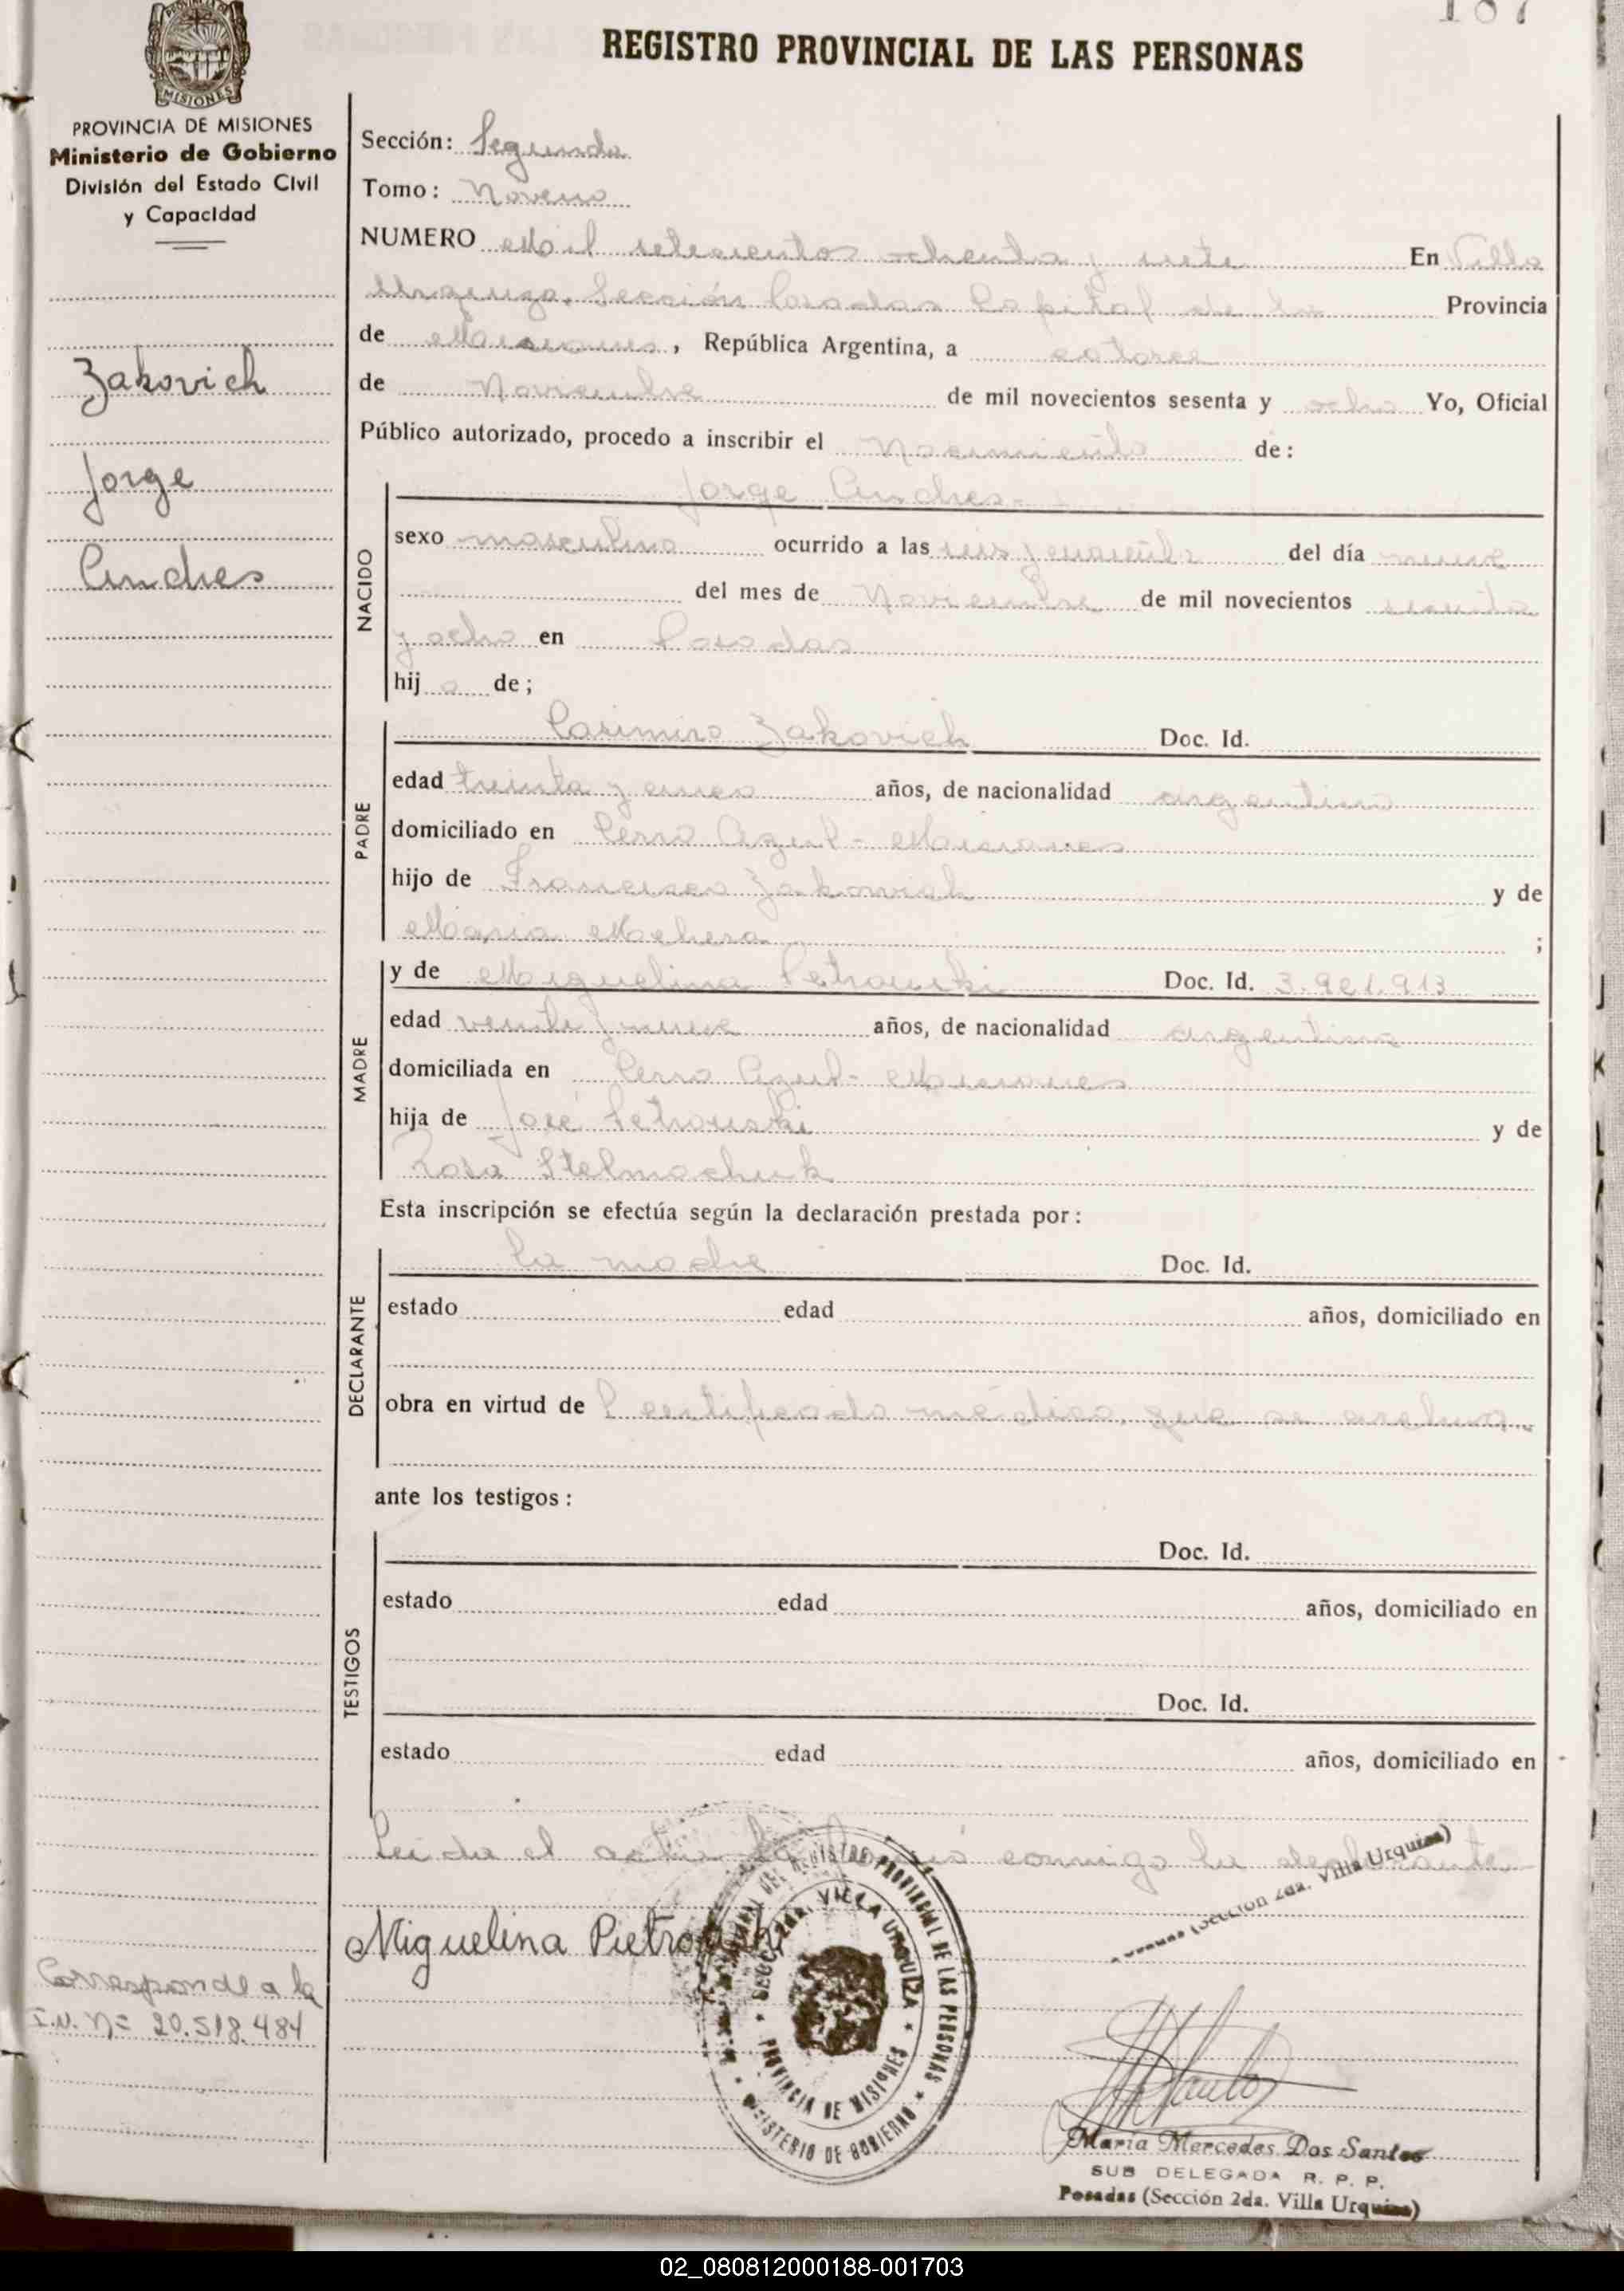 187
REGISTRO PROVINCIAL DE LAS PERSONAS
MISIONES
PROVINCIA DE MISIONES
Ministerio de Gobierno
División del Estado Civil
y Capacidad
Zakovich
Jorge
Andres
Corresponde a la
I.N. Nº 20.518.484
Sección: Segunda
Tomo: Noveno
NUMERO Mil setecientos ochenta y siete En Villa
Urquiza, Sección Posadas Capital de la Provincia
de Misiones, República Argentina, a catorce
de Noviembre de mil novecientos sesenta y ocho Yo, Oficial
Público autorizado, procedo a inscribir el Nacimiento de:
NACIDO
Jorge Andres
sexo masculino ocurrido a las seis y cuarenta del día nueve
del mes de Noviembre de mil novecientos sesenta
y ocho en Posadas
hijo de;
PADRE
Casimiro Zakovich Doc. Id.
edad treinta y cinco años, de nacionalidad argentino
domiciliado en Cerro Azul - Misiones
hijo de Francisco Zakovich y de
Maria Mehera ;
MADRE
y de Miguelina Petrouski Doc. Id. 3.901.913
edad veinte y nueve años, de nacionalidad argentina
domiciliada en Cerro Azul - Misiones
hija de José Petrouski y de
Rosa Stelmachuk
Esta inscripción se efectúa según la declaración prestada por:
DECLARANTE
la madre Doc. Id.
estado edad años, domiciliado en
obra en virtud de Certificado médico, que se archiva.
ante los testigos:
TESTIGOS
Doc. Id.
estado edad años, domiciliado en
Doc. Id.
estado edad años, domiciliado en
Leida el acta la firmó conmigo la declarante
(Sección 2da. Villa Urquiza)
Miguelina Pietrouski
REGISTRO PROVINCIAL DE LAS PERSONAS
MINISTERIO DE GOBIERNO
SECC. 2da. VILLA URQUIZA
PROVINCIA DE MISIONES
María Mercedes Dos Santos
SUB DELEGADA R. P. P.
Posadas (Sección 2da. Villa Urquiza)
02_080812000188-001703